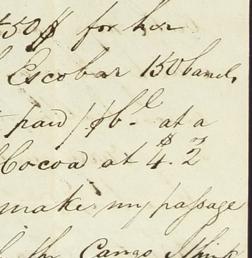 50$ for her
Escobar 150 barrels
paid pr bl. at a
Cocoa at $4.2
make my passage
the Cargo I think